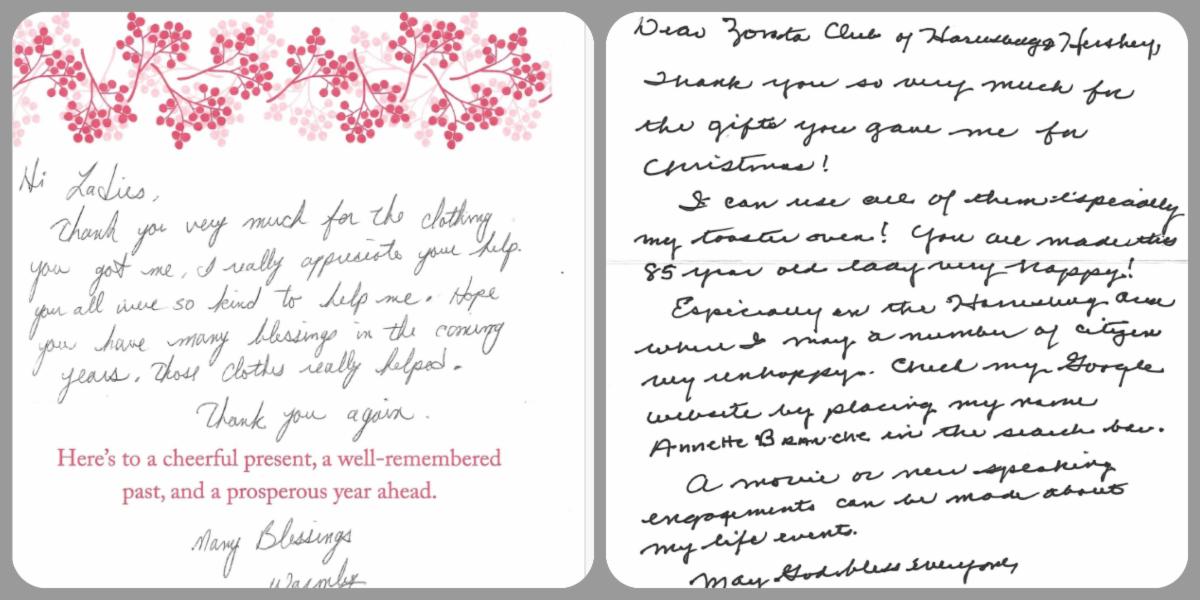 Hi Ladies,
Thank you very much for the clothing
you got me. I really appresiate your help.
you all were so kind to help me. Hope
you have many blessings in the coming
years. Those clothes really helped.
Thank you again.
Here's to a cheerful present, a well-remembered
past, and a prosperous year ahead.
Many Blessings
Dear Zonta Club of Harrisburg & Hershey,
Thank you so very much for
the gifts you gave me for
Christmas!
I can use all of them especially
my toaster oven! You are made this
85 year old lady very happy!
Especially in the Harrisburg area
where I may a number of citizen
very unhappy. Check my Google
website by placing my name
Annette Branche in the search bar.
A movie or new speaking
engagements can be made about
my life events.
May God bless everyone,